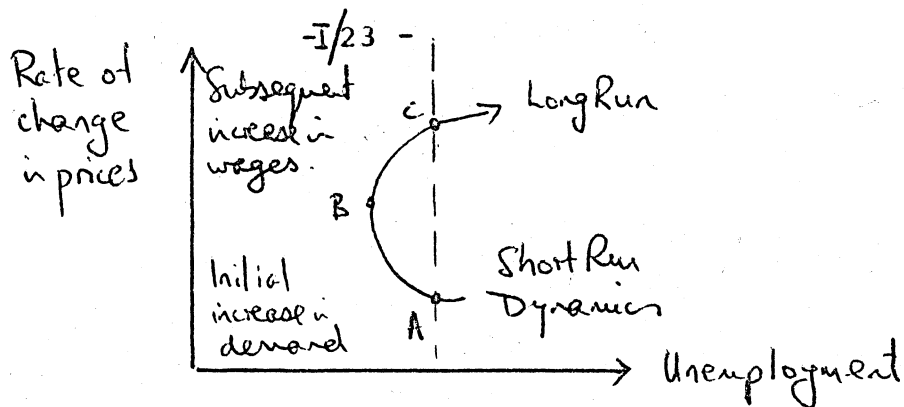 -I/23 -
Rate of
change
in prices
Subsequent
increase in
wages.
C
Long Run
B
Initial
increase in
demand
A
Short Run
Dynamics
Unemployment